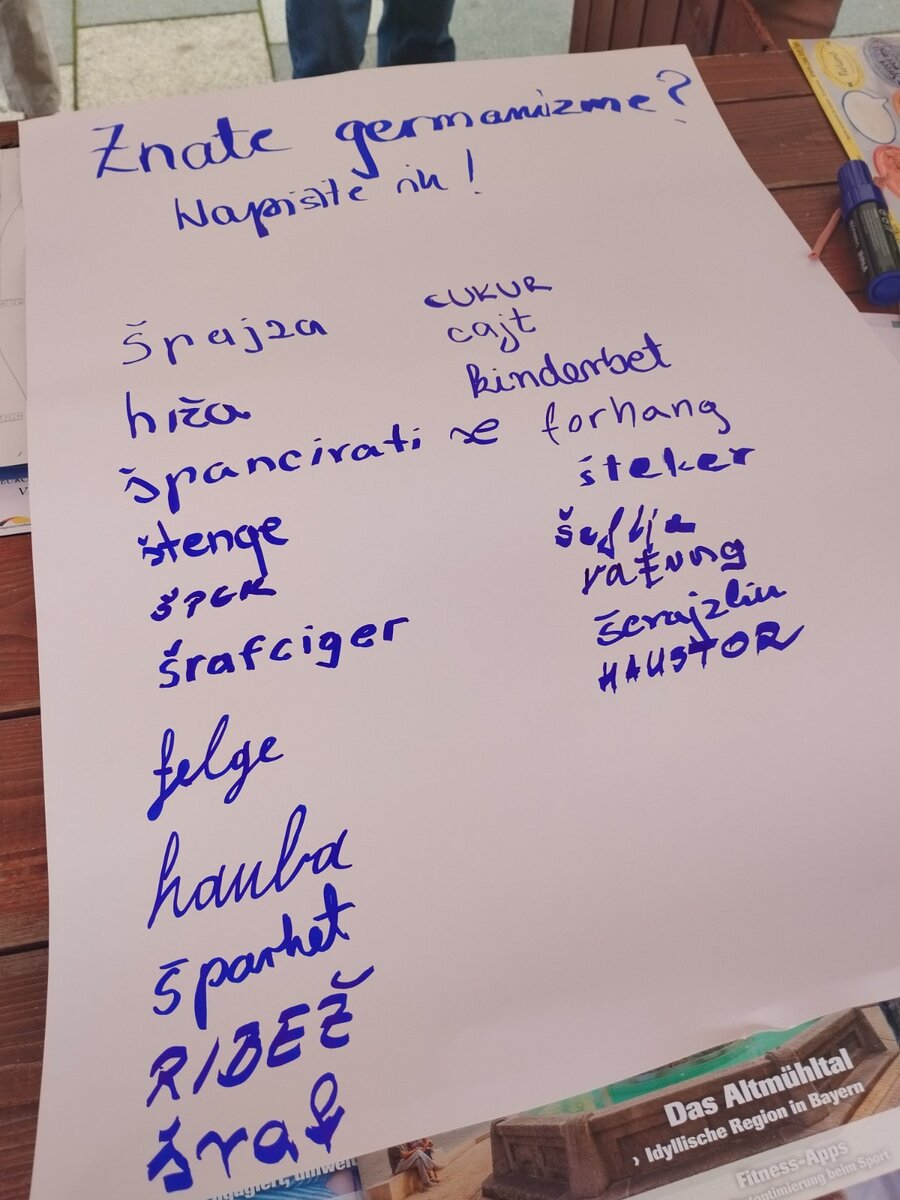 Znate germanizme?
Napišite ih!
špajza
hiža
špancirati se
štenge
špek
šrafciger
felge
hauba
šparhet
RIBEŽ
šraf
CUKUR
cajt
kinderbet
forhang
šteker
HAUSTOR
Das Altmühltal
› Idyllische Region in Bayern
Fitness-Apps
beim Sport